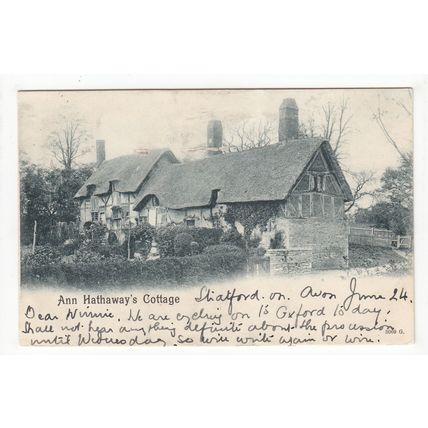 Ann Hathaway's Cottage
Stratford. on. Avon June 24.
Dear Winnie. We are cycling on to Oxford to day,
Shall not hear anything definite about the procession
until Wednesday, so will write again or wire.
5069 G.